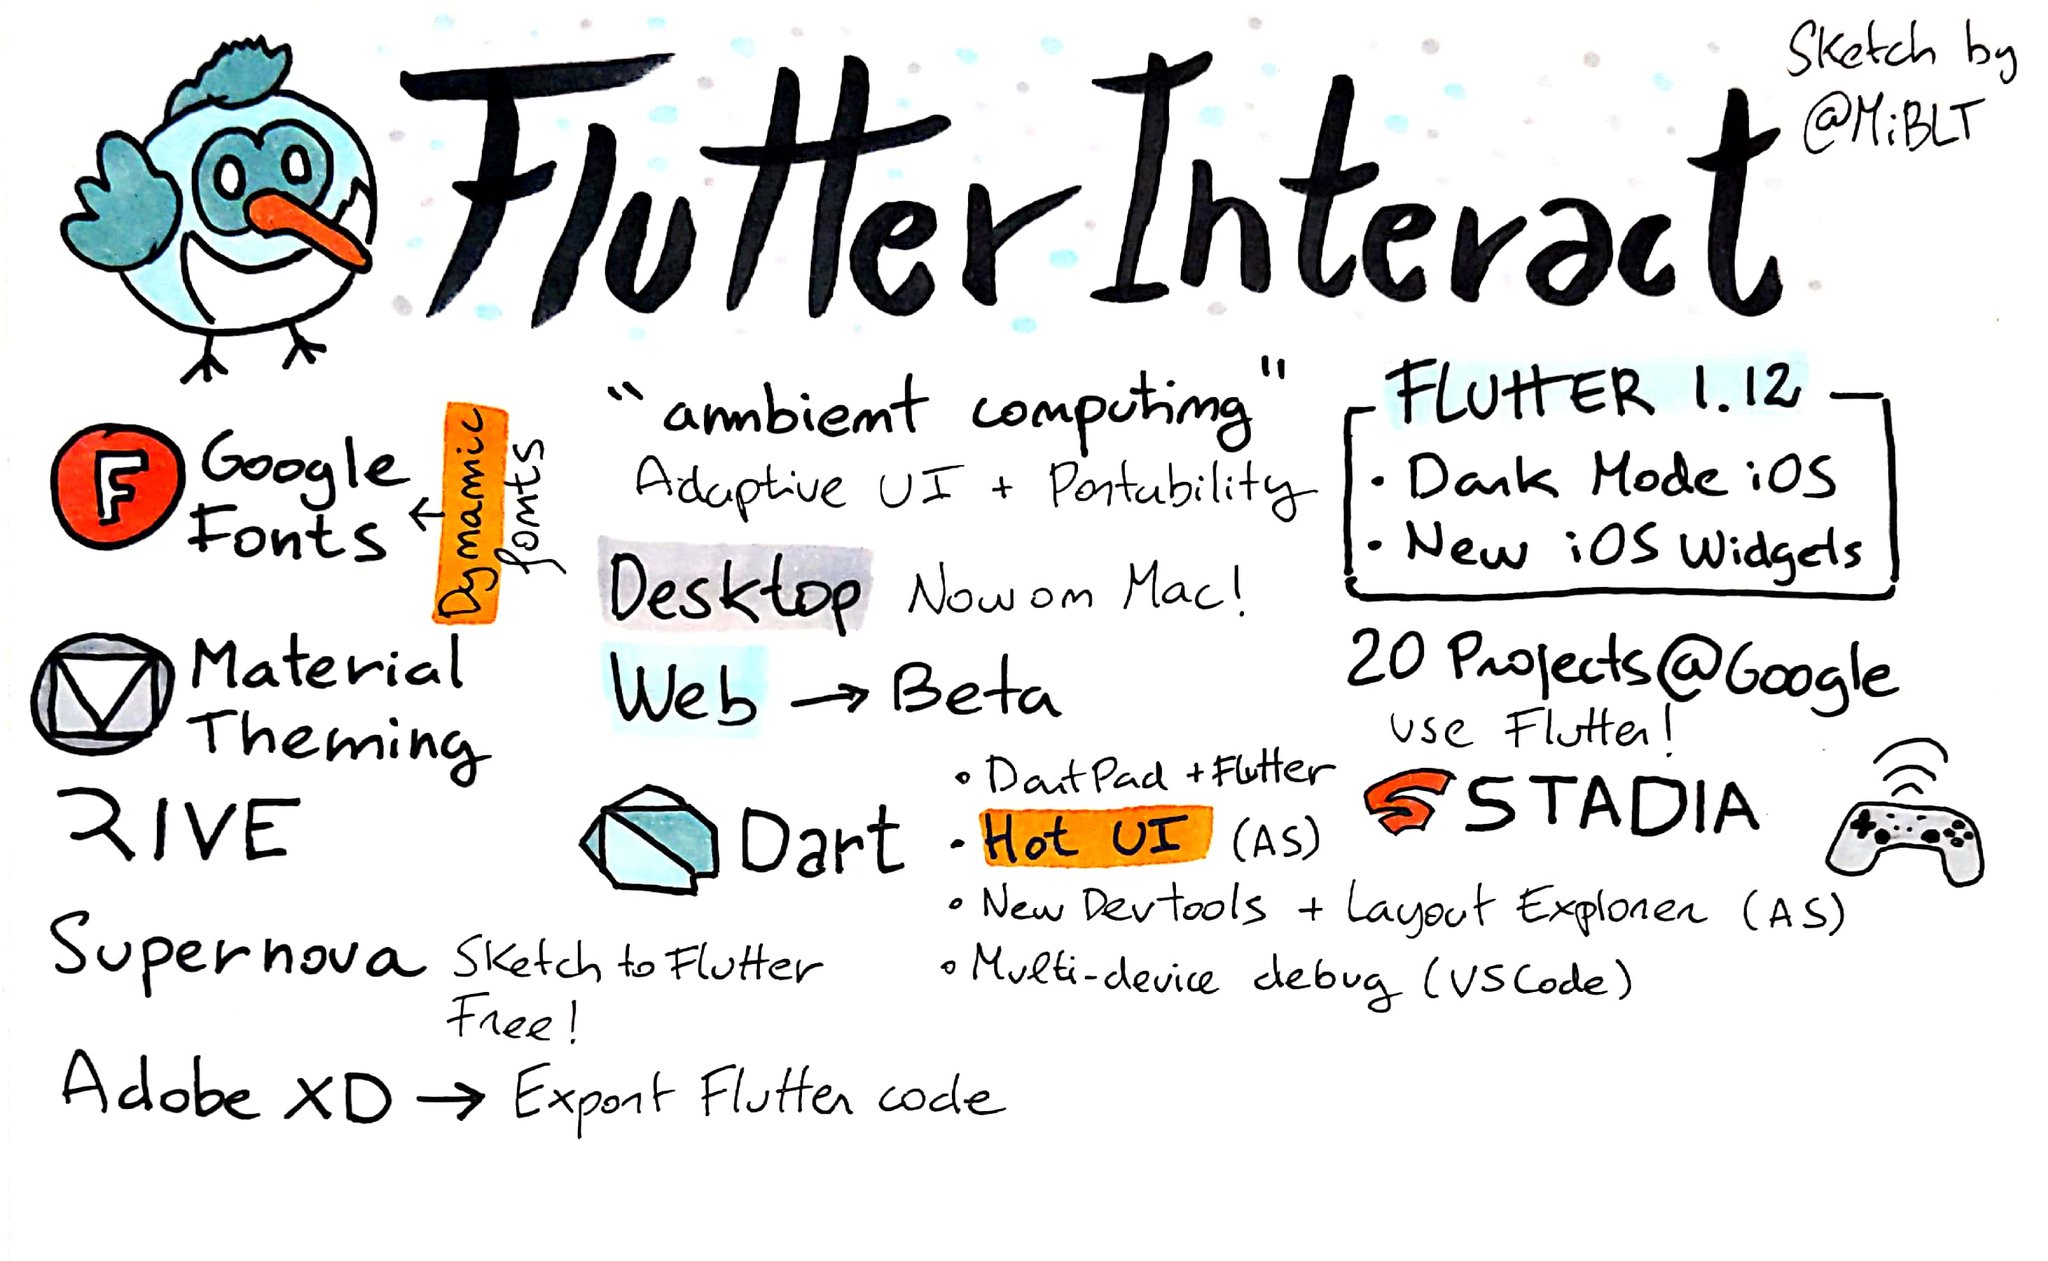 Flutter Interact
Sketch by
@MiBLT
F
Google
Fonts
←
Dynamic
fonts
Material
Theming
RIVE
Supernova
Sketch to Flutter
Free!
Adobe XD → Export Flutter code
"ambient computing"
Adaptive UI + Portability
Desktop Now on Mac!
Web → Beta
Dart
• DartPad + Flutter
• Hot UI (AS)
• New Devtools + Layout Explorer (AS)
• Multi-device debug (VSCode)
FLUTTER 1.12
• Dark Mode iOS
• New iOS Widgets
20 Projects@Google
use Flutter!
STADIA